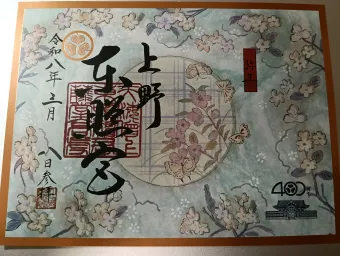 上野
東照宮
令和八年三月
八日参拝
400